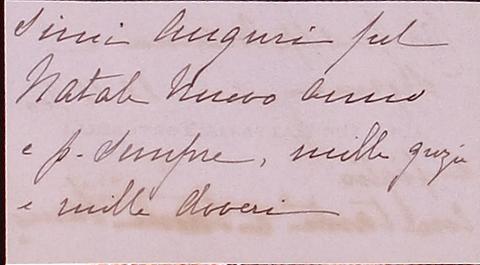 simi Auguri pel
Natale Nuovo Anno
e p. Sempre, mille grazie
e mille doveri